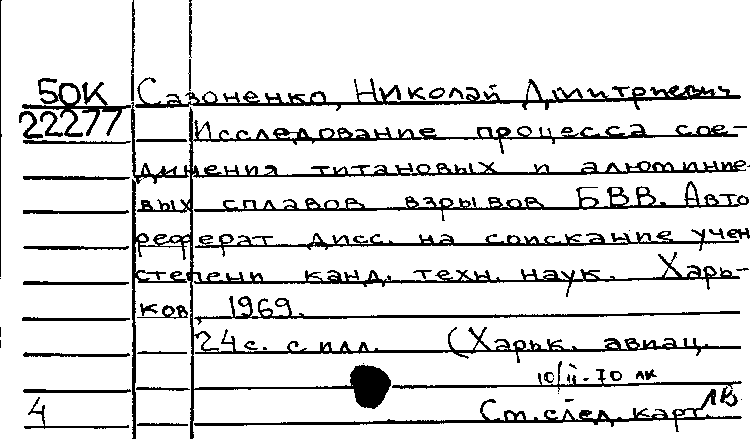 50К Сазоненко, Николай Дмитриевич
22277 Исследование процесса сое-
динения титановых и алюминие-
вых сплавов взрывов БВВ. Авто
реферат дисс. на соискание учен
степени канд. техн. наук. Харь-
ков, 1969.
24с. с илл. (Харьк. авиац.
10/II-70 лк
4 См. след. карт. ЛВ